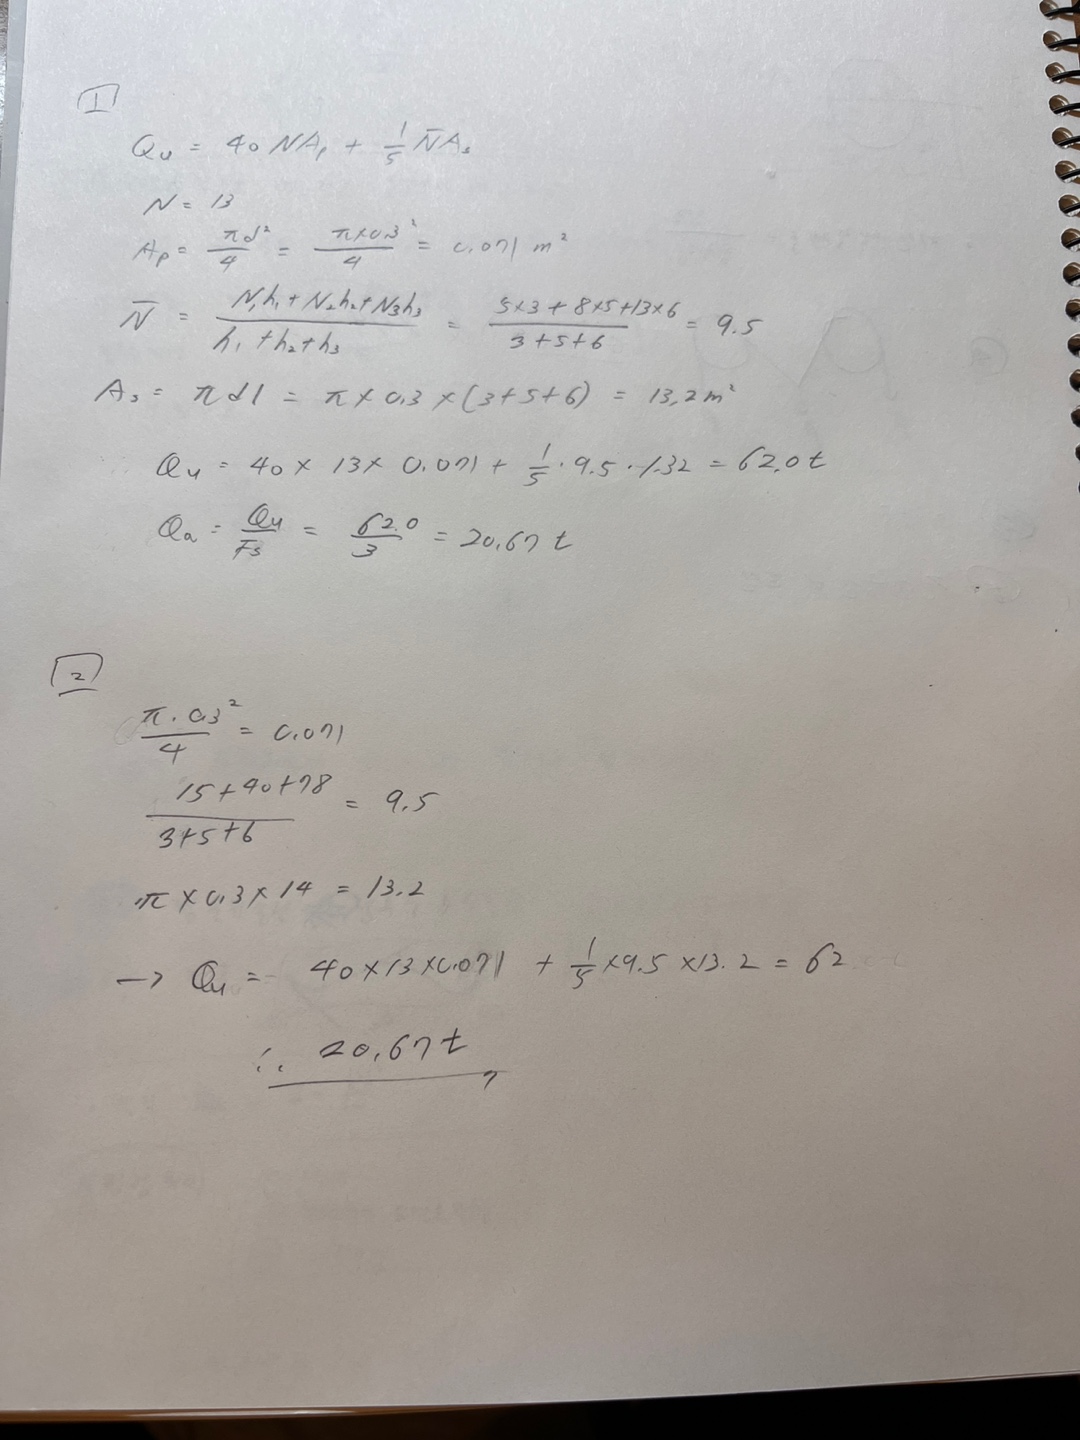 1
Qu = 40 N Ap + 1/5 N̄ As
N = 13
Ap = πd²/4 = π×0.3²/4 = 0.071 m²
N̄ = (N₁h₁ + N₂h₂ + N₃h₃)/(h₁ + h₂ + h₃) = (5×3 + 8×5 + 13×6)/(3+5+6) = 9.5
As = πdl = π × 0.3 × (3+5+6) = 13.2 m²
Qu = 40 × 13 × 0.071 + 1/5 · 9.5 · 1.32 = 62.0 t
Qa = Qu/Fs = 62.0/3 = 20.67 t
2
π · 0.3²/4 = 0.071
(15+40+78)/(3+5+6) = 9.5
π × 0.3 × 14 = 13.2
→ Qu = 40 × 13 × 0.071 + 1/5 × 9.5 × 13.2 = 62
∴ 20.67 t